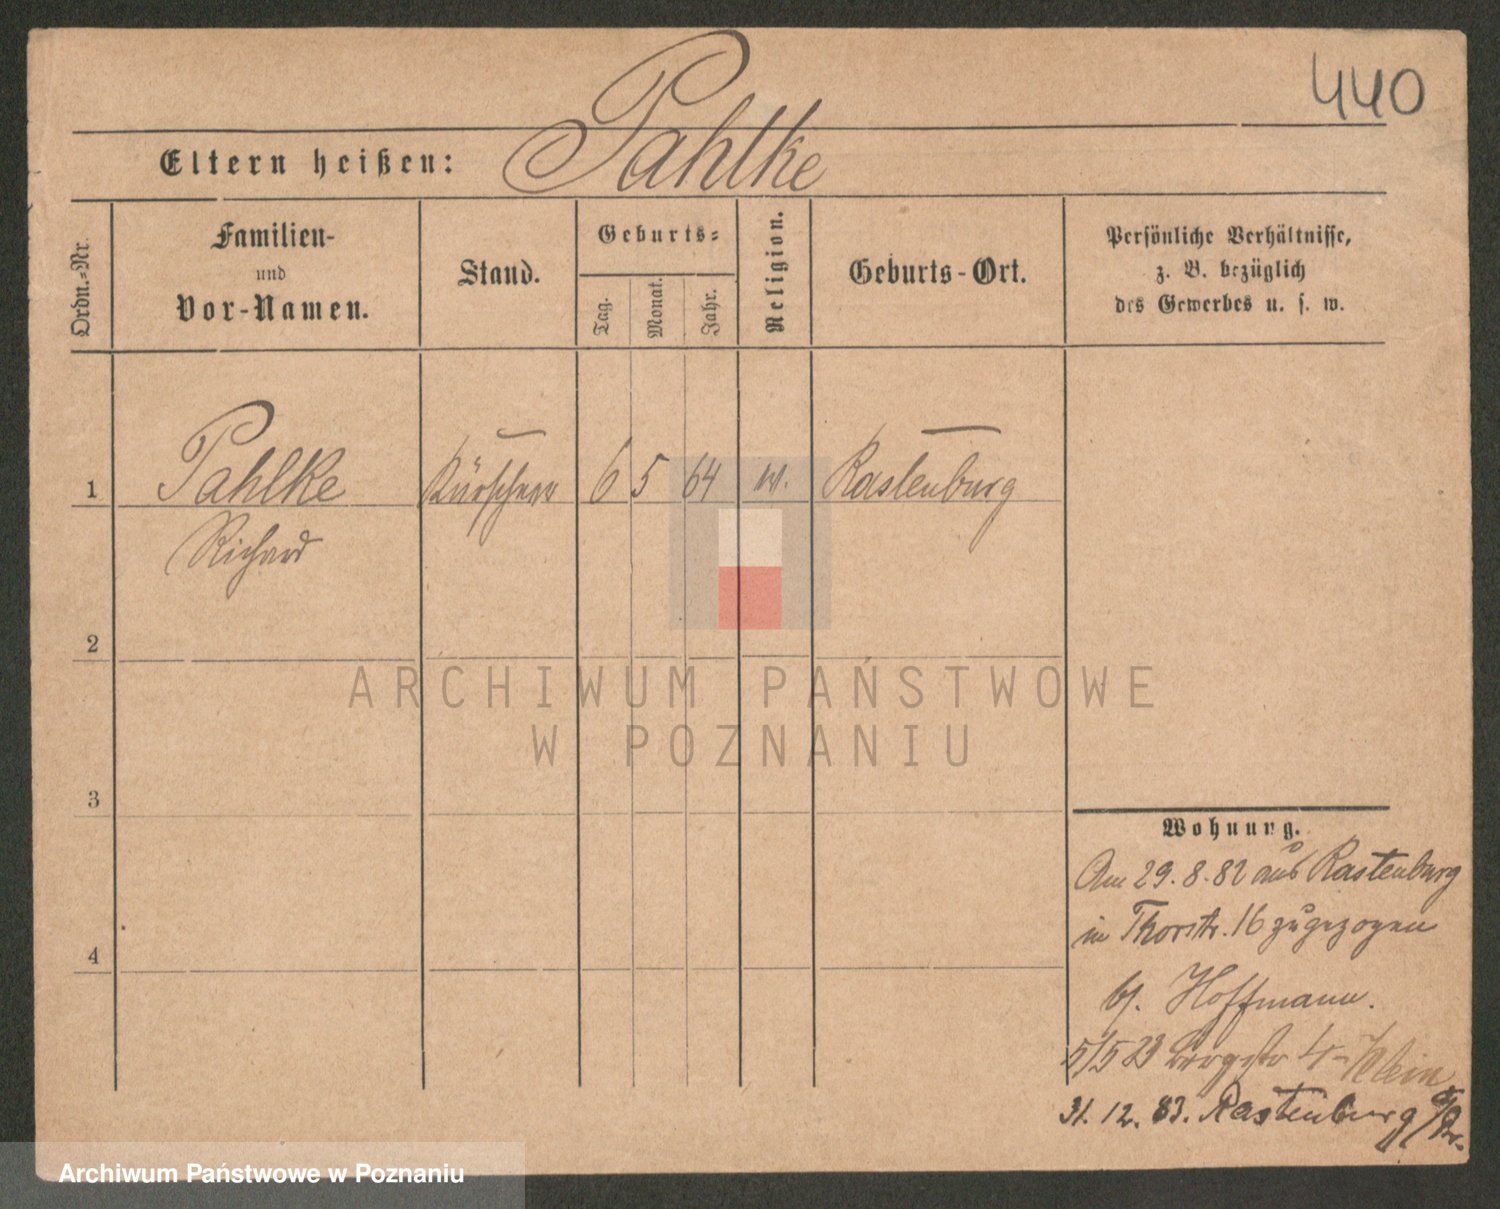 440
Pahlke
Eltern heißen:
Ordn.-Nr.
Familien-
und
Vor-Namen.
Stand.
Geburts-
Tag.
Monat.
Jahr.
Religion.
Geburts-Ort.
Persönliche Verhältnisse,
z. B. bezüglich
des Gewerbes u. s. w.
1 Pahlke Kürschner 6 5 64 Rastenburg
Richard
2
3
4
ARCHIWUM PAŃSTWOWE
W POZNANIU
Wohnung.
Am 29.8.82 aus Rastenburg
in Thorstr. 16 zugezogen
bj. Hoffmann.
5/5 83 Bergstr 4 Klein
31.12.83. Rastenburg
Archiwum Państwowe w Poznaniu